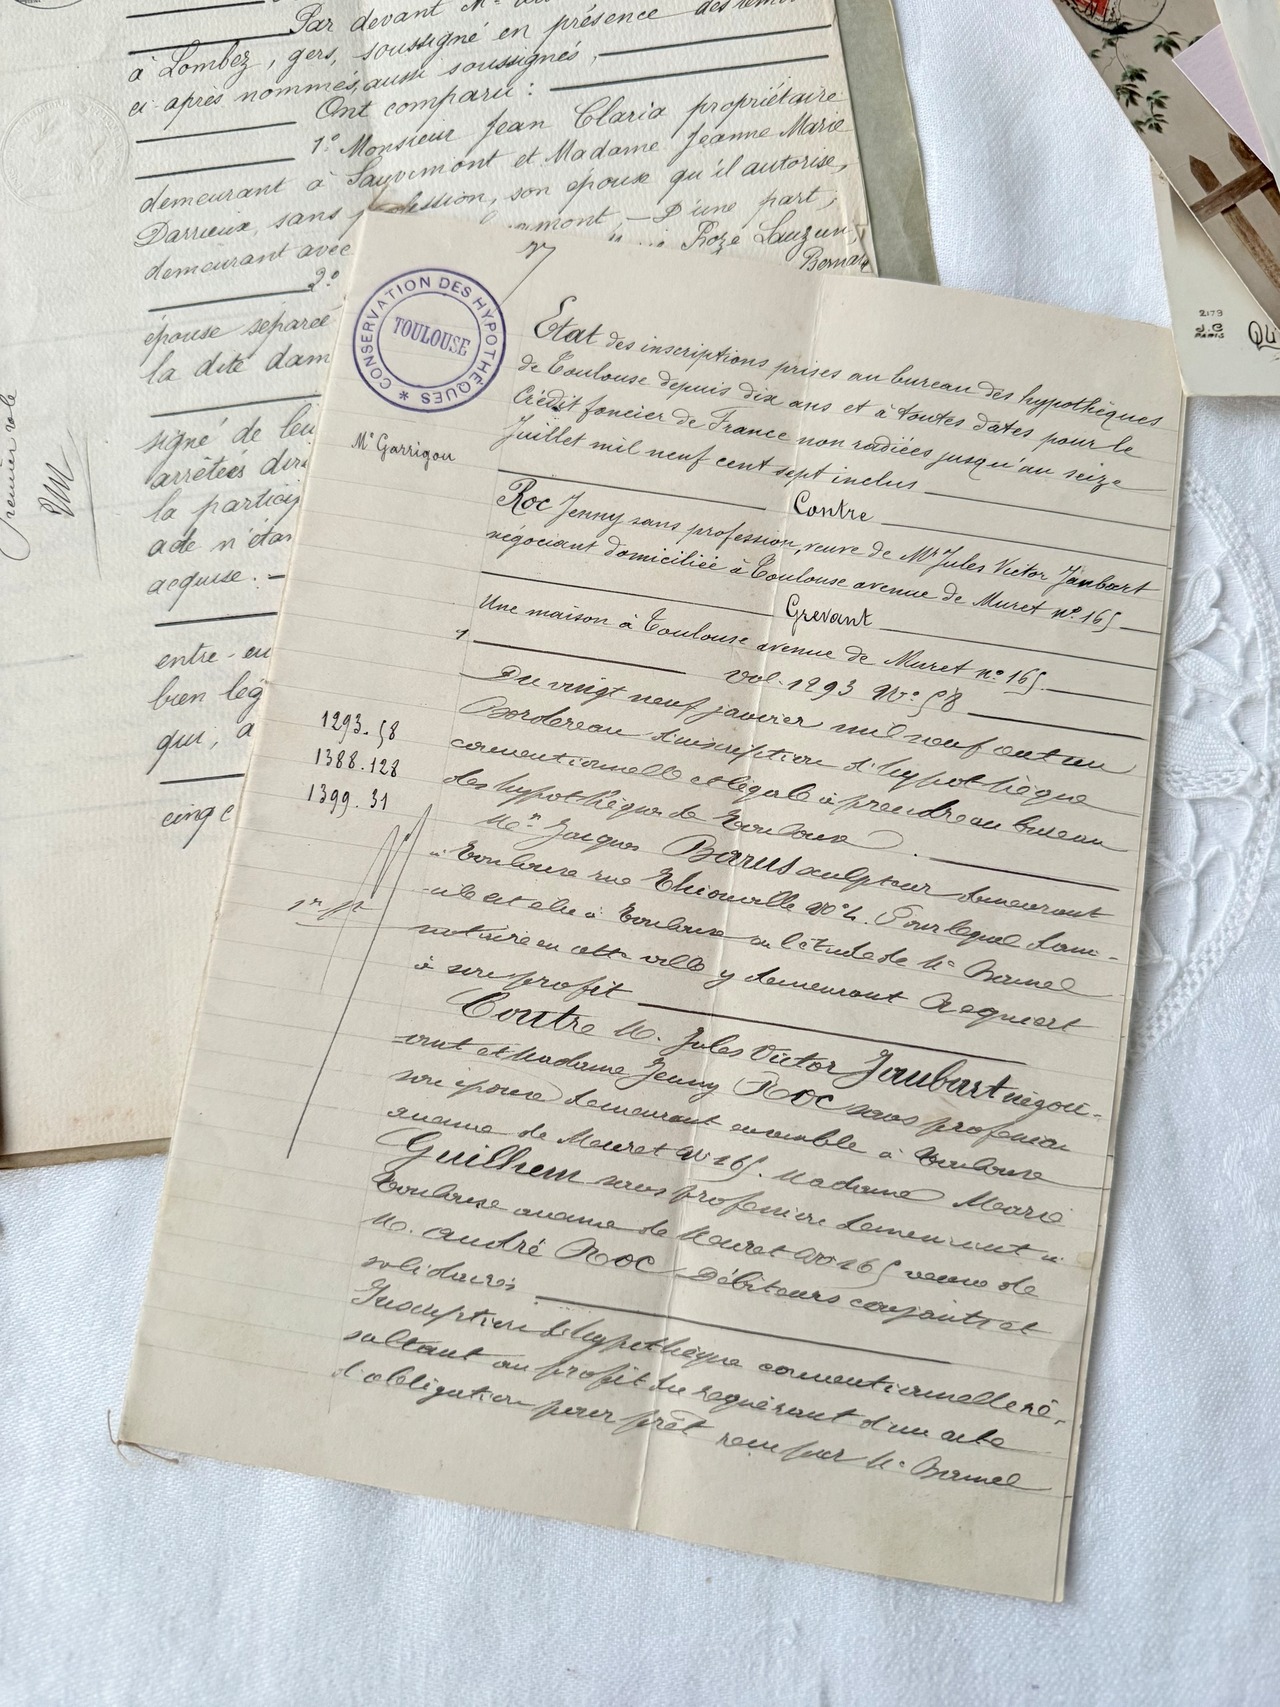 Par devant Me
à Lombez, gers, soussigné en présence des témoins
ci après nommés, aussi soussignés,
Ont comparu :
1.° Monsieur Jean Claria propriétaire
demeurant à Sauvimont et Madame Jeanne Marie
Darrieux, sans profession, son épouse qu'il autorise,
demeurant avec mont, — D'une part,
2.° Roze Lauzun,
Bernar
épouse séparée
la dite dam
signé de leu
arrêtées
la particip
acte n'étan
acquise. —
entre-eu
bien lég
qui, a
cinq c
premier role
CONSERVATION DES HYPOTHÈQUES *
TOULOUSE
Me Garrigou
Etat des inscriptions prises au bureau des hypothèques
de Toulouse depuis dix ans et à toutes dates pour le
Crédit foncier de France non radiées jusqu'au seize
Juillet mil neuf cent sept inclus
Contre
Roc Jenny sans profession, veuve de Mr Jules Victor Jaubart
négociant domiciliée à Toulouse avenue de Muret no. 165
Grevant
Une maison à Toulouse avenue de Muret no 165.
1 vol. 1293 No. 58
Du vingt neuf janvier mil neuf cent un
Bordereau d'inscription d'hypothèque
conventionnelle et légale à prendre au bureau
des hypothèques de Toulouse
1293.58
1388.128
1399.31
Mr. Jacques Barus sculpteur demeurant
à Toulouse rue Thionville No 4. Pour lequel domi-
cile est élu à Toulouse en l'étude de Me
notaire en cette ville y demeurant Requiert
à son profit
Contre M. Jules Victor Jaubart négoci-
ant et Madame Jenny Roc sans profession
son épouse demeurant ensemble à Toulouse
avenue de Muret No 165. Madame Marie
Guilhem sans profession demeurant à
Toulouse avenue de Muret No 165 veuve de
M. André Roc Débiteurs conjoints et
solidaires
Inscription d'hypothèque conventionnelle ré-
sultant au profit du requérant d'un acte
d'obligation pour prêt reçu par Me
2179
J.C
PARIS
QU